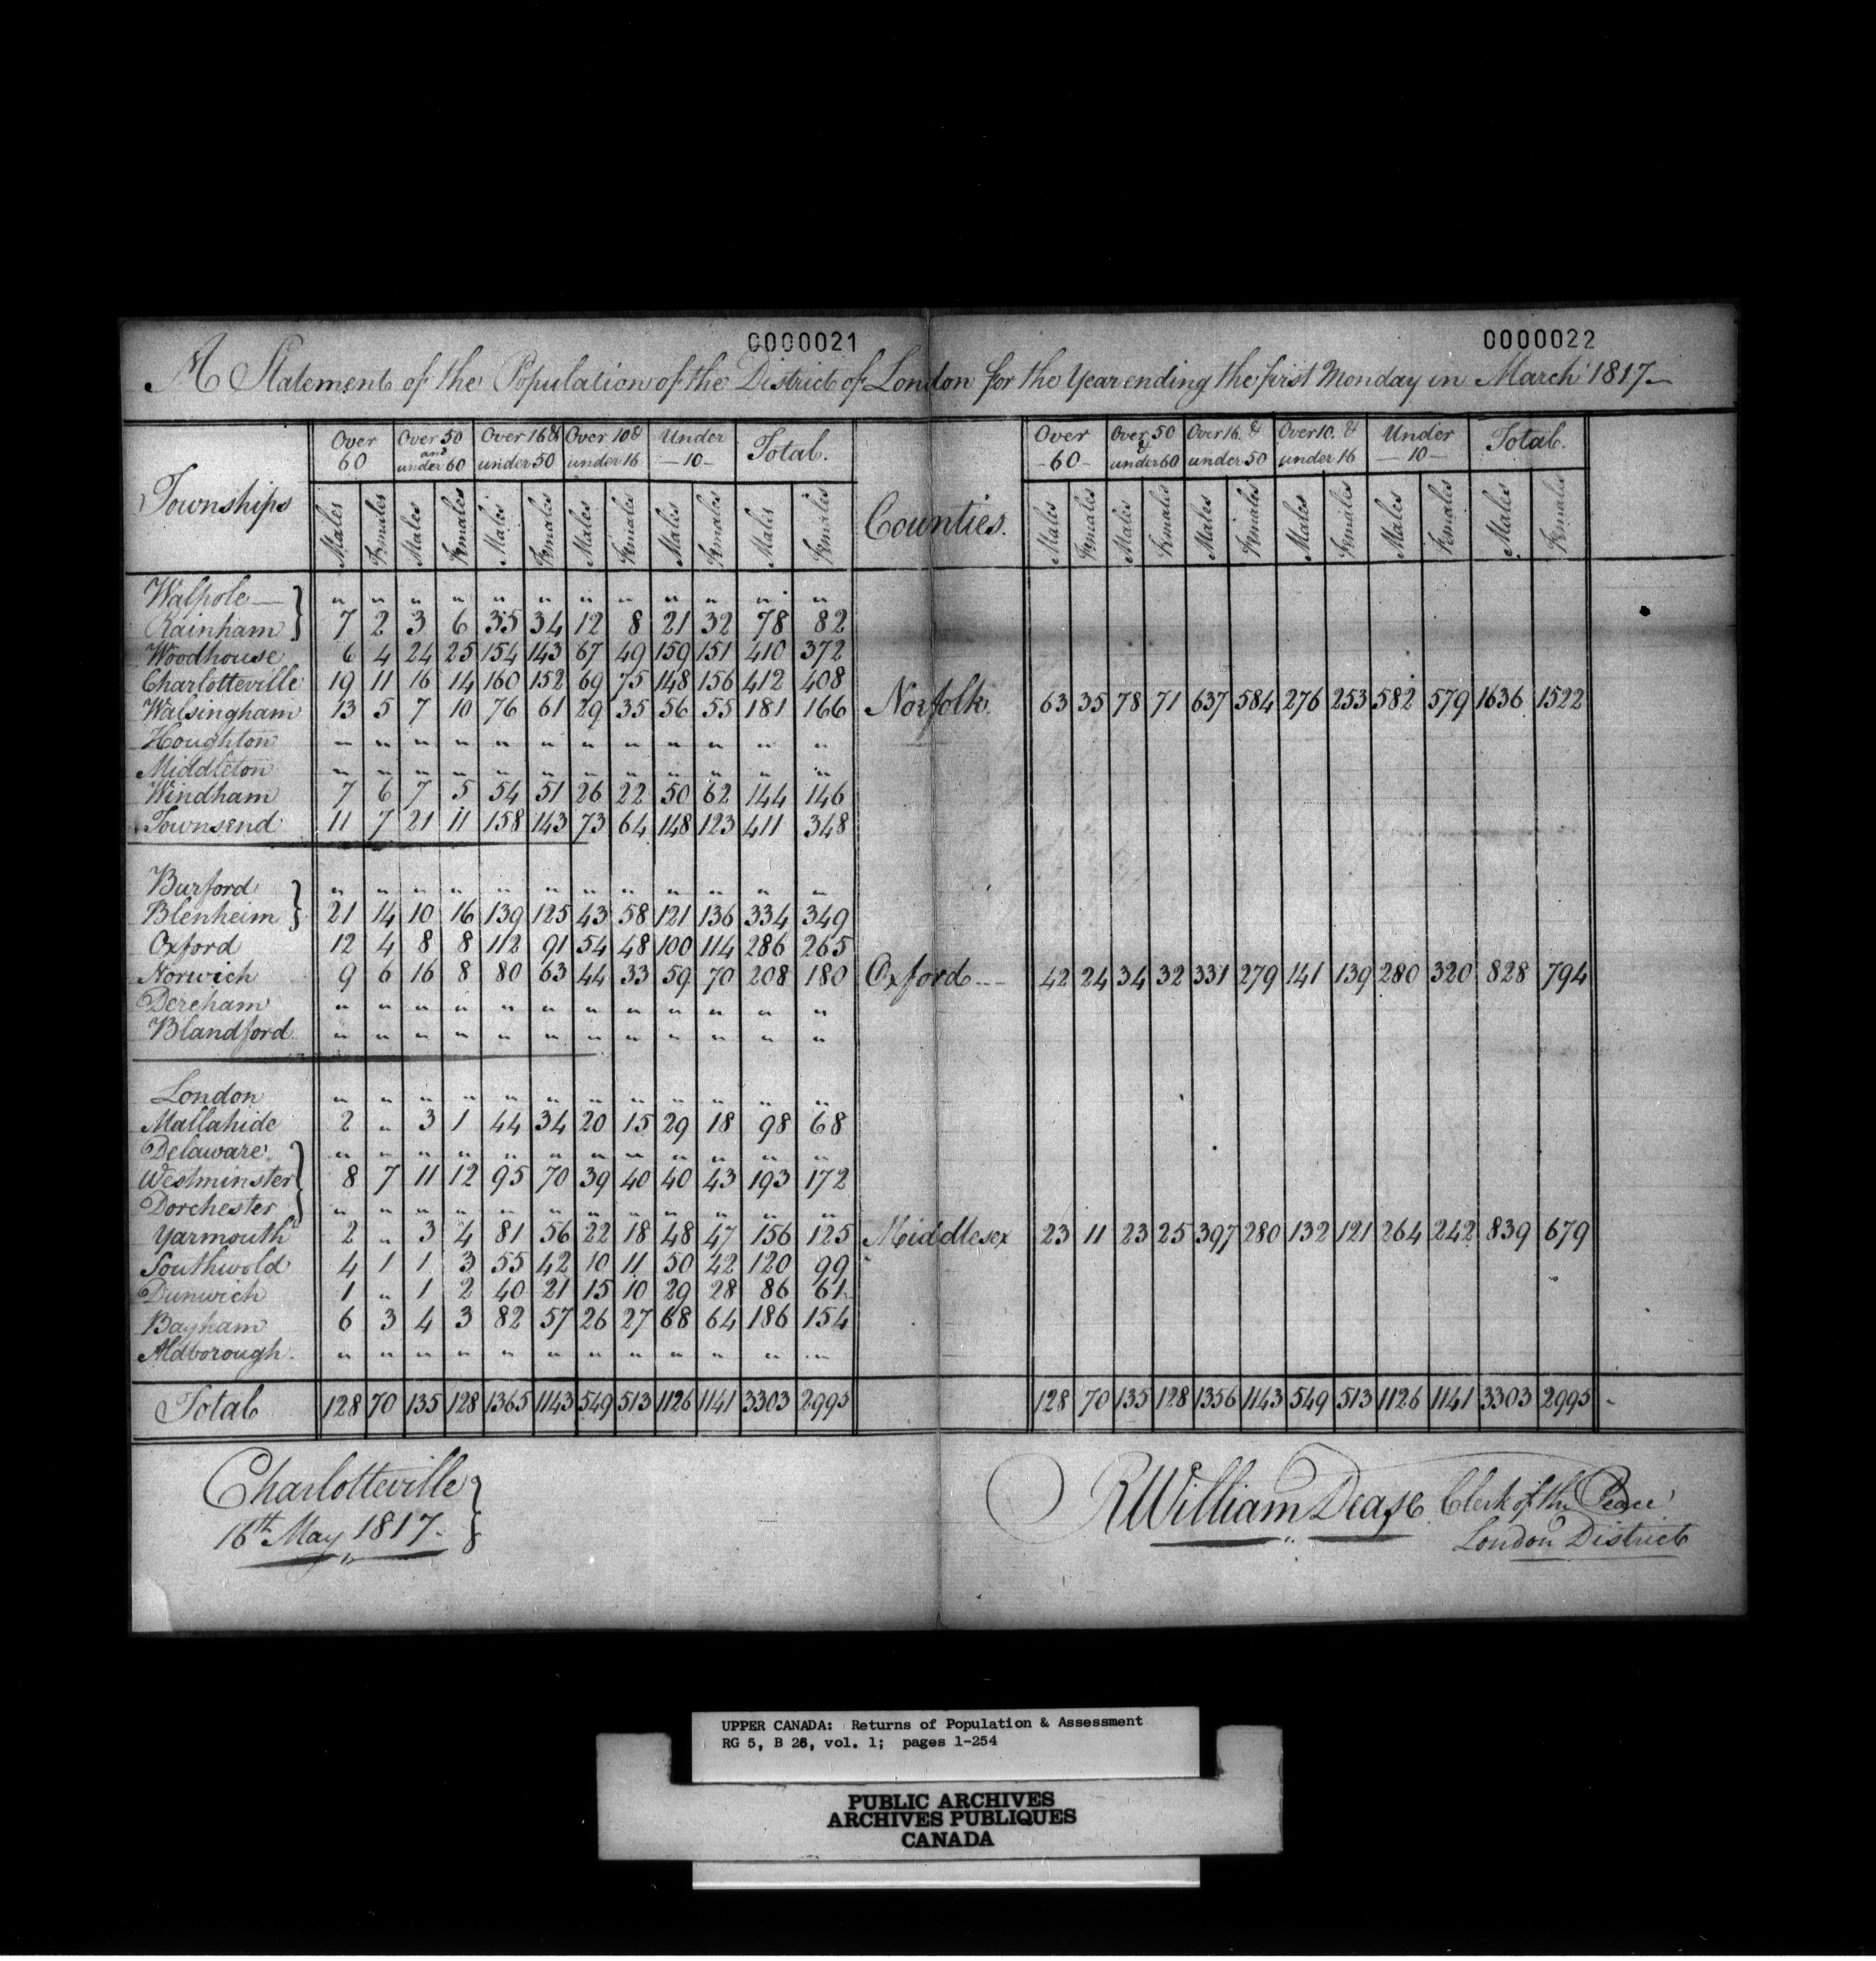 0000021
0000022
A Statement of the Population of the District of London for the Year ending the first Monday in March 1817
Townships
Over 60
Over 50 and under 60
Over 16 & under 50
Over 10 & under 16
Under 10
Total.
Counties.
Over 60
Over 50 & under 60
Over 16. & under 50
Over 10. & under 16
Under 10
Total.
Males Females Males Females Males Females Males Females Males Females Males Females
Males Females Males Females Males Females Males Females Males Females Males Females
Walpole } " " " " " " " " " " " "
Rainham } 7 2 3 6 35 34 12 8 21 32 78 82
Woodhouse 6 4 24 25 154 143 67 49 159 151 410 372
Charlotteville 19 11 16 14 160 152 69 75 148 156 412 408
Walsingham 13 5 7 10 76 61 29 35 56 55 181 166 Norfolk. 63 35 78 71 637 584 276 253 582 579 1636 1522
Houghton " " " " " " " " " " " "
Middleton " " " " " " " " " " " "
Windham 7 6 7 5 54 51 26 22 50 62 144 146
Townsend 11 7 21 11 158 143 73 64 148 123 411 348
Burford } " " " " " " " " " " " "
Blenheim } 21 14 10 16 139 125 43 58 121 136 334 349
Oxford 12 4 8 8 112 91 54 48 100 114 286 265
Norwich 9 6 16 8 80 63 44 33 59 70 208 180 Oxford 42 24 34 32 331 279 141 139 280 320 828 794
Dereham " " " " " " " " " " " "
Blandford " " " " " " " " " " " "
London " " " " " " " " " " " "
Mallahide 2 " 3 1 44 34 20 15 29 18 98 68
Delaware } " " " " " " " " " " " "
Westminster } 8 7 11 12 95 70 39 40 40 43 193 172
Dorchester } " " " " " " " " " " " "
Yarmouth 2 " 3 4 81 56 22 18 48 47 156 125 Middlesex 23 11 23 25 397 280 132 121 264 242 839 679
Southwold 4 1 1 3 55 42 10 11 50 42 120 99
Dunwich 1 " 1 2 40 21 15 10 29 28 86 61
Bayham 6 3 4 3 82 57 26 27 68 64 186 154
Aldborough " " " " " " " " " " " "
Total 128 70 135 128 1365 1143 549 513 1126 1141 3303 2995 128 70 135 128 1356 1143 549 513 1126 1141 3303 2995
Charlotteville }
16th May 1817.
R William Dease Clerk of the Peace
London District
UPPER CANADA: Returns of Population & Assessment
RG 5, B 26, vol. 1; pages 1-254
PUBLIC ARCHIVES
ARCHIVES PUBLIQUES
CANADA